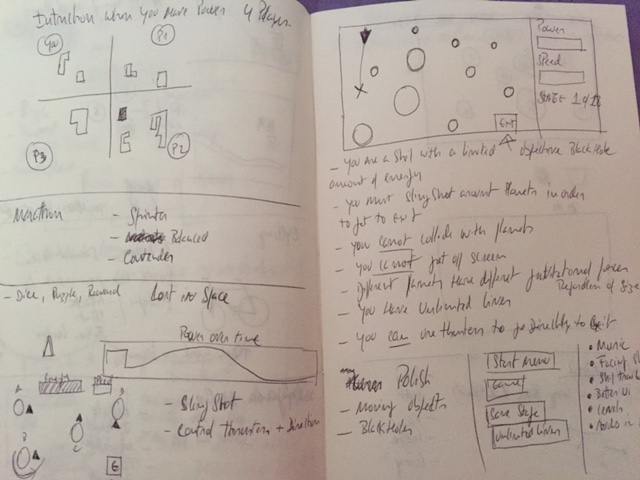 when you have Power 4 Player
You
P1
P3
P2
Marathon
- Sprinter
- Balanced
- Contender
- Dice, Puzzle, Reward
Lost in Space
Power over time
- Sling Shot
- Control thrusters + Direction
E
Power
Speed
Exit
- You are a Ship with a limited
objective Black Hole
amount of energy
- You must Sling Shot around Planets in order
to get to Exit
- You cannot collide with planets
- You cannot get off screen
- Different planets Have different gravitational forces
Regardless of Size
- You Have Unlimited Lives
- You can use thrusters to go Directly to Exit
Polish
- Moving objects
- Blackholes
Start Menu
Game
Save State
Unlimited Lives
• Music
• Facing
• Ship
• Better UI
• Levels